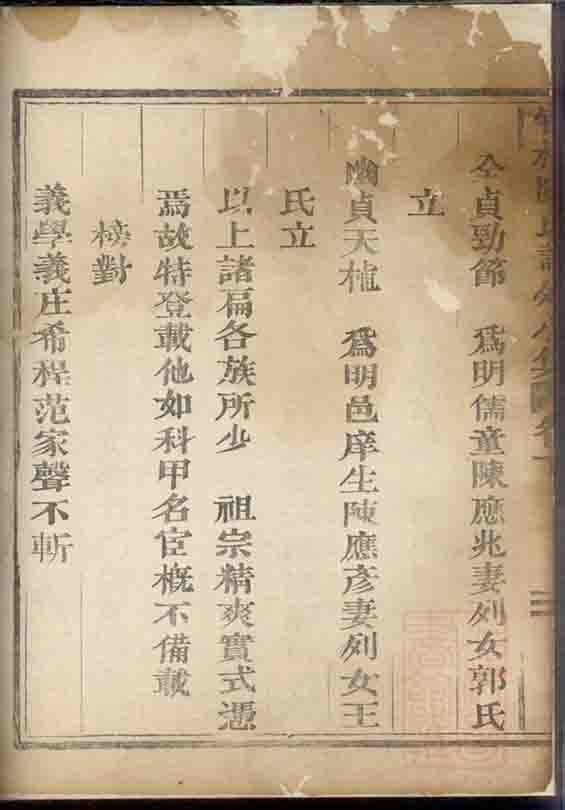 全貞勁節　爲明儒童陳應兆妻列女郭氏
立
幽貞天植　爲明邑庠生陳應彥妻列女王
氏立
以上諸扁各族所少　祖宗精爽實式憑
焉故特登載他如科甲名宦槪不備載
榜對
義學義庄希程范家聲不斬